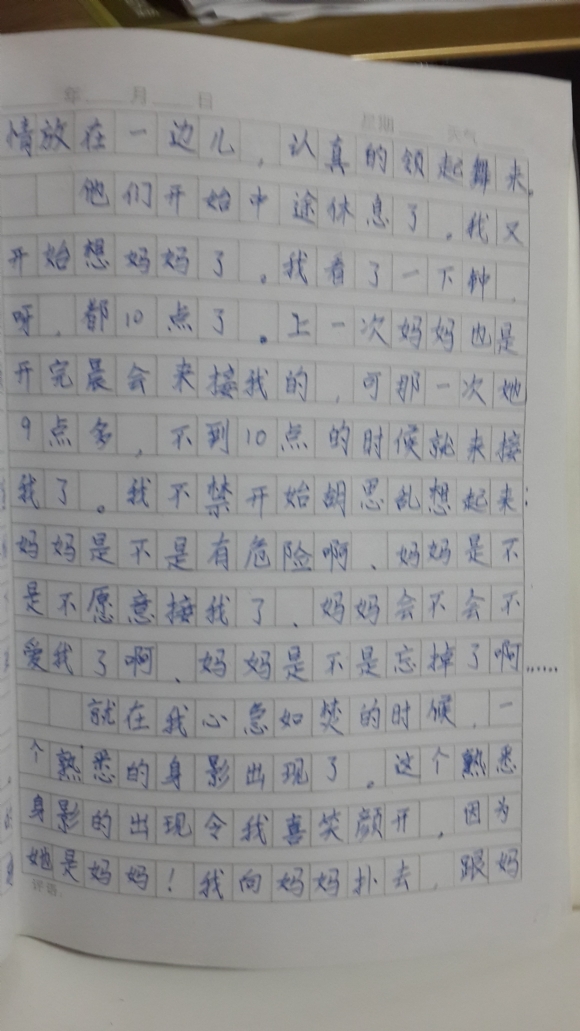 年 月 日 星期 天气
情放在一边儿,认真的领起舞来。
他们开始中途休息了。我又
开始想妈妈了。我看了一下钟,
呀,都10点了。上一次妈妈也是
开完晨会来接我的,可那一次她
9点多,不到10点的时候就来接
我了。我不禁开始胡思乱想起来:
妈妈是不是有危险啊、妈妈是不
是不愿意接我了、妈妈会不会不
爱我了啊、妈妈是不是忘掉了啊……
就在我心急如焚的时候,一
个熟悉的身影出现了。这个熟悉
身影的出现令我喜笑颜开,因为
她是妈妈!我向妈妈扑去,跟妈
评语: